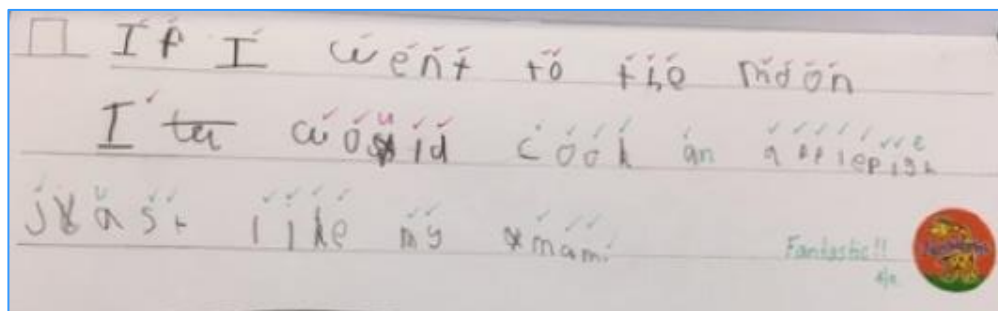 If I went to the moon
I would cook an applepie
just like my mam.
Fantastic!!